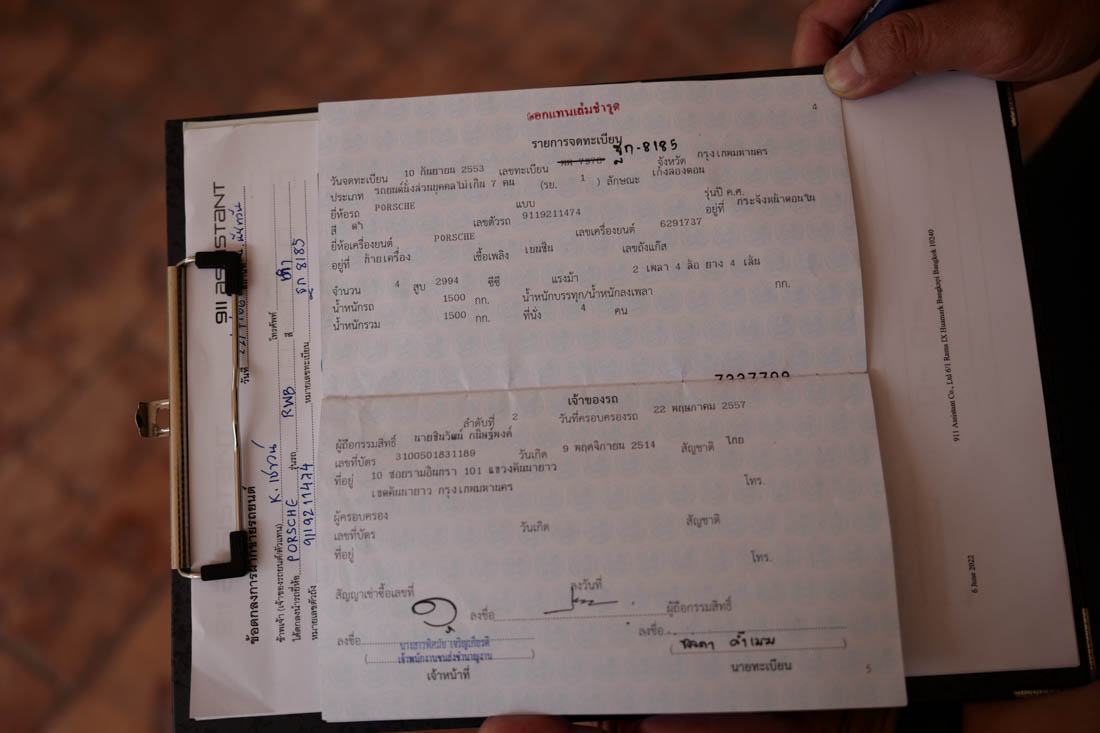 ออกแทนเล่มชำรุด
4
รายการจดทะเบียน
ฐก-8185
วันจดทะเบียน 10 กันยายน 2553 เลขทะเบียน จังหวัด กรุงเทพมหานคร
ประเภท รถยนต์นั่งส่วนบุคคลไม่เกิน 7 คน (รย. 1 ) ลักษณะ เก๋งสองตอน
ยี่ห้อรถ PORSCHE แบบ รุ่นปี ค.ศ.
สี ดำ เลขตัวรถ 9119211474 อยู่ที่ กระจังหน้าตอนใน
ยี่ห้อเครื่องยนต์ PORSCHE เลขเครื่องยนต์ 6291737
อยู่ที่ ท้ายเครื่อง เชื้อเพลิง เบนซิน เลขถังแก๊ส
จำนวน 4 สูบ 2994 ซีซี แรงม้า 2 เพลา 4 ล้อ ยาง 4 เส้น
น้ำหนักรถ 1500 กก. น้ำหนักบรรทุก/น้ำหนักลงเพลา กก.
น้ำหนักรวม 1500 กก. ที่นั่ง 4 คน
เจ้าของรถ
ลำดับที่ 2 วันที่ครอบครองรถ 22 พฤษภาคม 2557
ผู้ถือกรรมสิทธิ์ นายชินวัฒน์ กนิษฐ์พงค์
เลขที่บัตร 3100501831189 วันเกิด 9 พฤศจิกายน 2514 สัญชาติ ไทย
ที่อยู่ 10 ซอยรามอินทรา 101 แขวงคันนายาว
เขตคันนายาว กรุงเทพมหานคร โทร.
ผู้ครอบครอง
เลขที่บัตร วันเกิด สัญชาติ
ที่อยู่ โทร.
สัญญาเช่าซื้อเลขที่ ลงวันที่
ลงชื่อ ผู้ถือกรรมสิทธิ์
ลงชื่อ ลงชื่อ
เจ้าพนักงานขนส่งชำนาญงาน
เจ้าหน้าที่ นายทะเบียน
5
911 ASSISTANT
ข้อตกลงการฝากขายรถยนต์
วันที่
ข้าพเจ้า (เจ้าของรถยนต์/ตัวแทน) โทรศัพท์
ได้ตกลงนำรถยี่ห้อ PORSCHE รุ่นรถ RWB สี ดำ
หมายเลขตัวถัง 9119211474 หมายเลขทะเบียน ฐก 8185
911 Assistant Co., Ltd 6/1 Rama IX Huamark Bangkapi Bangkok 10240
6 June 2022